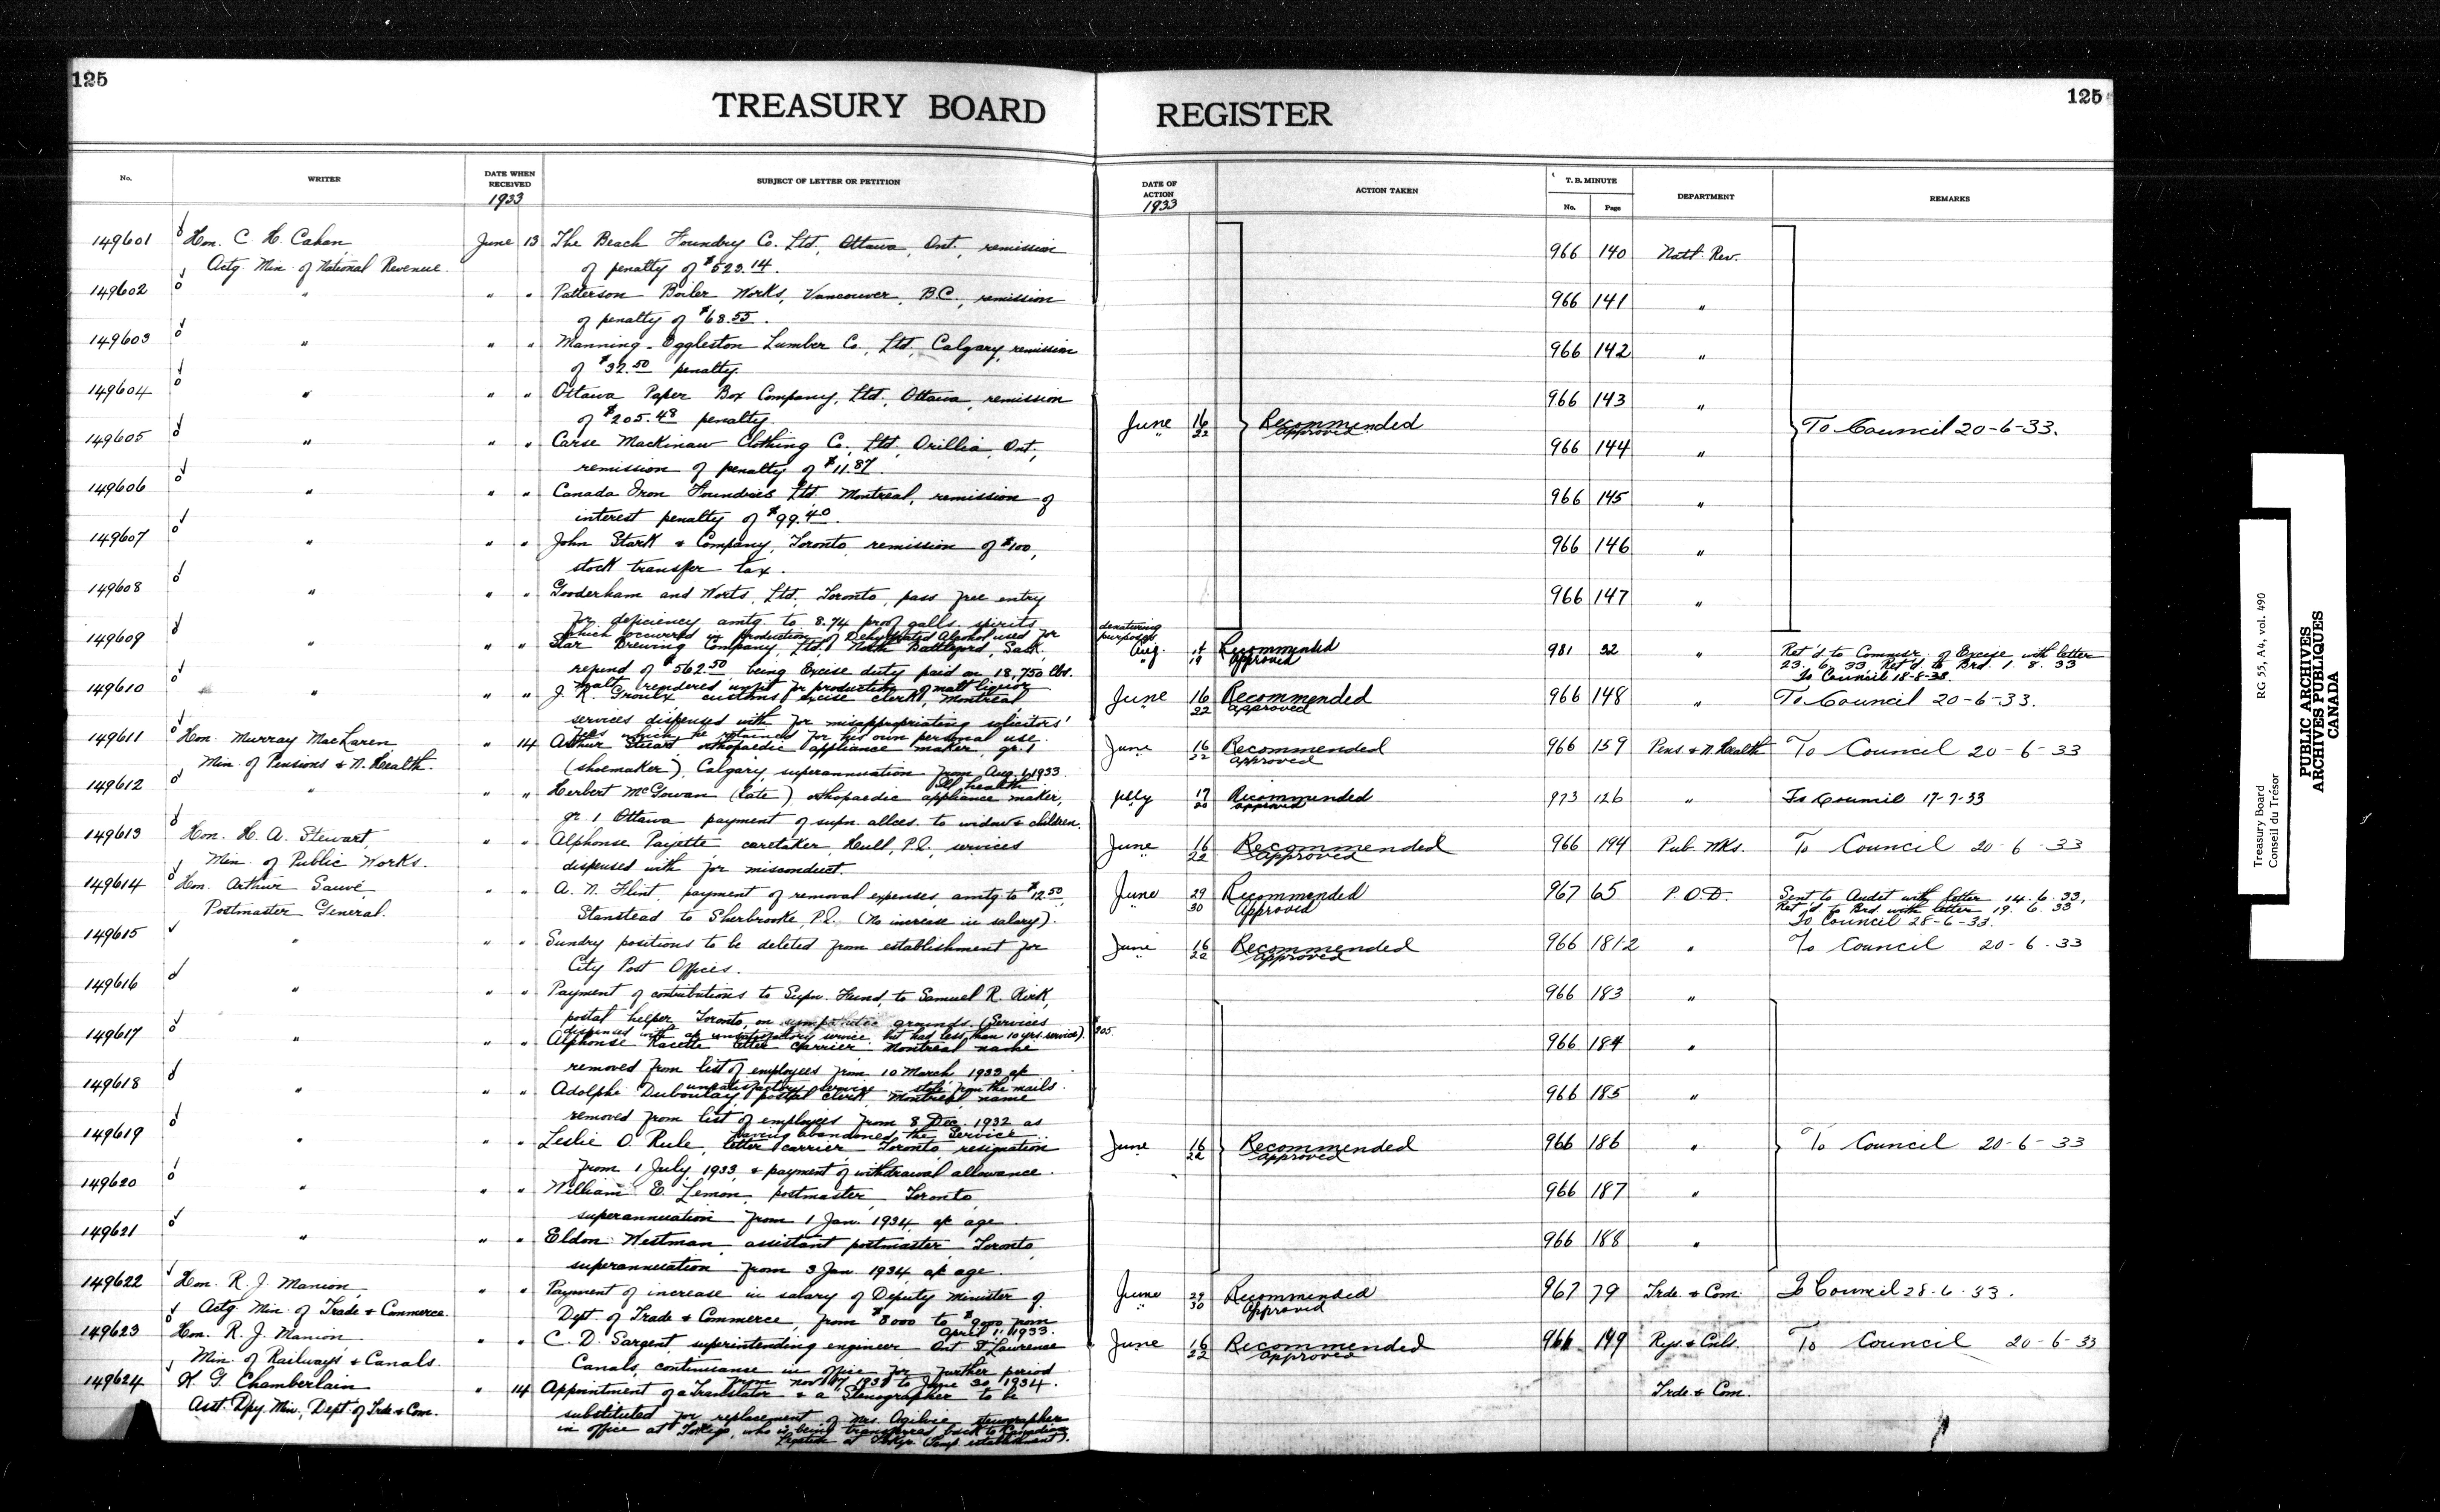 125
125
TREASURY BOARD REGISTER
No.
WRITER
DATE WHEN RECEIVED
1933
SUBJECT OF LETTER OR PETITION
DATE OF ACTION
1933
ACTION TAKEN
T. B. MINUTE
No. Page
DEPARTMENT
REMARKS
149601 Hon. C. H. Cahan, June 13 The Beach Foundry Co. Ltd., Ottawa, Ont., remission 966 140 Natl. Rev.
Actg. Min. of National Revenue. of penalty of $523.14.
149602 " " " Patterson Boiler Works, Vancouver, B.C., remission 966 141 "
of penalty of $68.55.
149603 " " " Manning-Eggleston Lumber Co., Ltd., Calgary, remission 966 142 "
of $32.50 penalty.
149604 " " " Ottawa Paper Box Company, Ltd., Ottawa, remission 966 143 "
of $205.48 penalty. June 16 Recommended To Council 20-6-33.
" 22 Approved
149605 " " " Carse Mackinaw Clothing Co., Ltd., Orillia, Ont., 966 144 "
remission of penalty of $11.87.
149606 " " " Canada Iron Foundries Ltd. Montreal, remission of 966 145 "
interest penalty of $99.40.
149607 " " " John Stark & Company, Toronto, remission of $100, 966 146 "
stock transfer tax.
149608 " " " Gooderham and Worts, Ltd., Toronto, pass free entry 966 147 "
for deficiency amtg. to 8.74 proof galls. spirits
which occurred in production of Dehydrated Alcohol used for denaturing purposes
149609 " " " Star Brewing Company, Ltd., North Battleford, Sask., Aug. Recommended 981 32 " Ret'd. to Commsr. of Excise with letter
refund of $562.50 being Excise duty paid on 18,750 lbs. 19 Approved 23. 6. 33. Ret'd. to Brd. 1. 8. 33
malt rendered unfit for production of malt liquor To Council 18-8-33.
149610 " " " J. R. Groulx, customs excise clerk, Montreal, June 16 Recommended 966 148 " To Council 20-6-33.
22 Approved
services dispensed with for misappropriating solicitors'
fees which he retained for his own personal use.
149611 Hon. Murray MacLaren " 14 Arthur Stuart, orthopaedic appliance maker, gr. 1 June 16 Recommended 966 159 Pens. & N. Health To Council 20-6-33
Min. of Pensions & N. Health. (shoemaker), Calgary, superannuation from Aug. 1, 1933. " 22 Approved
Ill health
149612 " " " Herbert McGowan (late) orthopaedic appliance maker, July 17 Recommended 973 126 " To Council 17-7-33
gr. 1 Ottawa payment of supn. allces. to widow & children. 20 Approved
149613 Hon. H. A. Stewart, " " Alphonse Payette caretaker, Hull, P.Q., services June 16 Recommended 966 194 Pub. Wks. To Council 20-6-33
Min. of Public Works. dispensed with for misconduct. " 22 Approved
149614 Hon. Arthur Sauvé " " A. N. Flint, payment of removal expenses amtg. to $12.50, June 29 Recommended 967 65 P.O.D. Sent to Audit with letter 14.6.33.
Postmaster General. Stanstead to Sherbrooke, P.Q. (No increase in salary). " 30 Approved Ret'd. to Brd. with letter 19. 6. 33
To Council 28-6-33.
149615 " " " Sundry positions to be deleted from establishment for June 16 Recommended 966 181-2 " To Council 20-6-33
City Post Offices. " 22 Approved
149616 " " " Payment of contributions to Supn. Fund, to Samuel R. Kirk, 966 183 "
postal helper, Toronto, on sympathetic grounds. (Services
dispensed with a/c unsatisfactory service, but had less than 10 yrs. service). $205.
149617 " " " Alphonse Racette letter carrier Montreal name 966 184 "
removed from list of employees from 10 March 1933 a/c
unsatisfactory service - stole from the mails.
149618 " " " Adolphe Duboulay, postal clerk Montreal name 966 185 "
removed from list of employees from 8 Dec. 1932 as
having abandoned the Service.
149619 " " " Leslie O. Rule, letter carrier Toronto, resignation June 16 Recommended 966 186 " To Council 20-6-33
from 1 July 1933, & payment of withdrawal allowance. 22 Approved
149620 " " " William E. Lemon, postmaster, Toronto 966 187 "
superannuation from 1 Jan. 1934, a/c age.
149621 " " " Eldon Westman, assistant postmaster Toronto, 966 188 "
superannuation from 3 Jan. 1934, a/c age.
149622 Hon. R. J. Manion, " " Payment of increase in salary of Deputy Minister of June 29 Recommended 967 79 Trde. & Com. To Council 28-6-33.
Actg. Min. of Trade & Commerce. Dept. of Trade & Commerce, from $8000 to $9000 from " 30 Approved
April 1, 1933.
149623 Hon. R. J. Manion " " C. D. Sargent, superintending engineer Ont. St. Lawrence June 16 Recommended 966 149 Rys. & Cnls. To Council 20-6-33
Min. of Railways & Canals. Canals, continuance in office for further period " 22 Approved
from Nov. 17, 1933 to June 30, 1934.
149624 H. G. Chamberlain " 14 Appointment of a Translator & a Stenographer to be Trde. & Com.
Asst. Dpy. Min., Dept. of Trde. & Com. substituted for replacement of Mrs. Ogilvie, stenographer
in office at Tokyo, who is being transferred back to Canadian
Legation at Tokyo (Temp. establishment).
Treasury Board RG 55, A4, vol. 490
Conseil du Trésor
PUBLIC ARCHIVES
ARCHIVES PUBLIQUES
CANADA